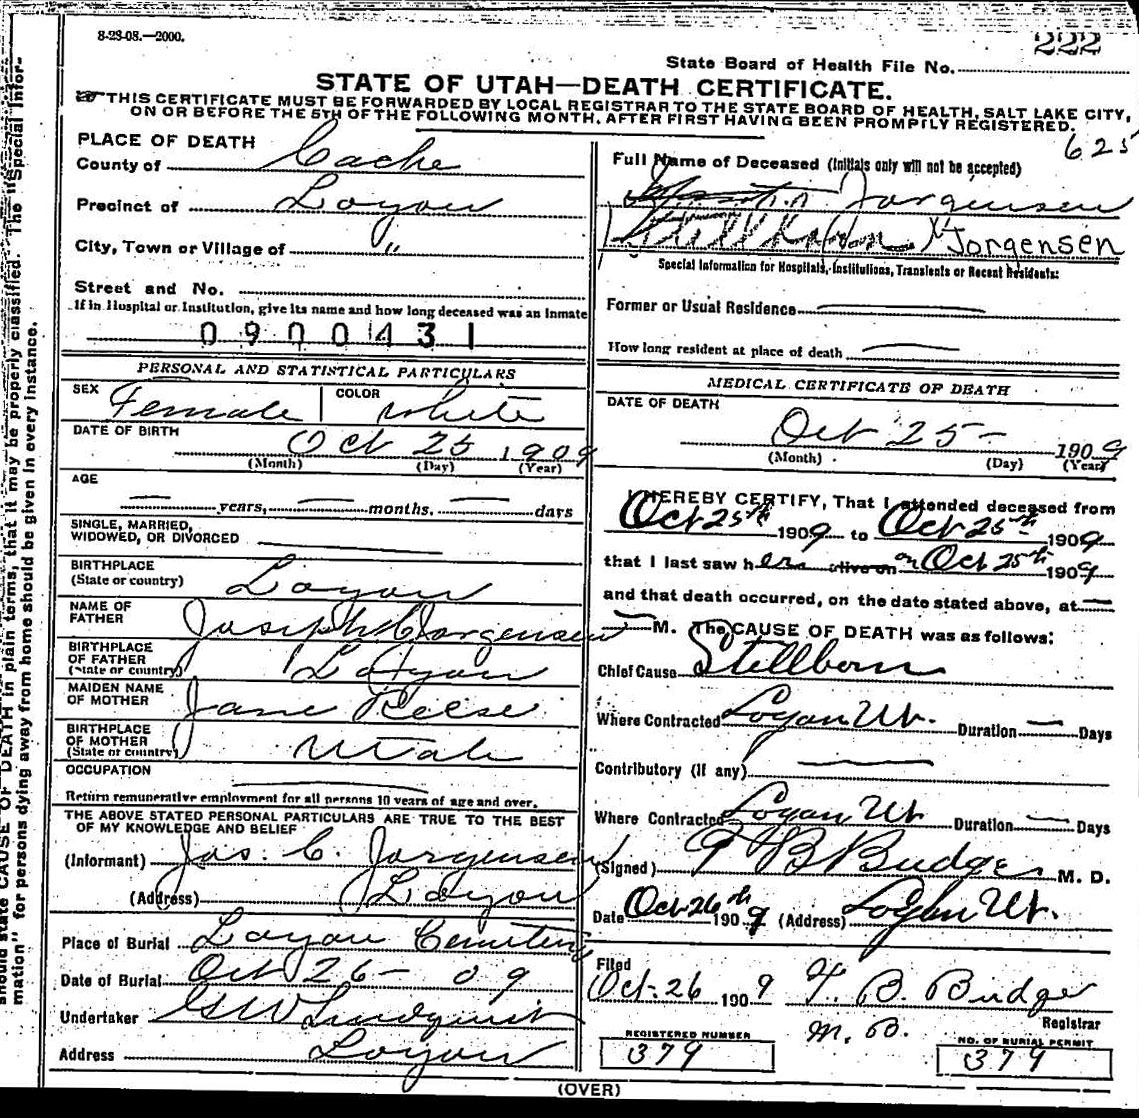 8-28-08.—2000.
222
State Board of Health File No.
STATE OF UTAH—DEATH CERTIFICATE.
THIS CERTIFICATE MUST BE FORWARDED BY LOCAL REGISTRAR TO THE STATE BOARD OF HEALTH, SALT LAKE CITY,
ON OR BEFORE THE 5TH OF THE FOLLOWING MONTH, AFTER FIRST HAVING BEEN PROMPTLY REGISTERED.
625
PLACE OF DEATH
County of Cache
Precinct of Logan
City, Town or Village of "
Street and No.
If in Hospital or Institution, give its name and how long deceased was an Inmate
0900431
PERSONAL AND STATISTICAL PARTICULARS
SEX Female COLOR White
DATE OF BIRTH Oct 25 1909
(Month) (Day) (Year)
AGE
— years, — months. — days
SINGLE, MARRIED,
WIDOWED, OR DIVORCED
BIRTHPLACE
(State or country) Logan
NAME OF
FATHER Joseph C Jorgensen
BIRTHPLACE
OF FATHER
(State or country) Logan
MAIDEN NAME
OF MOTHER Jane Reese
BIRTHPLACE
OF MOTHER
(State or country) Utah
OCCUPATION
Return remunerative employment for all persons 10 years of age and over.
THE ABOVE STATED PERSONAL PARTICULARS ARE TRUE TO THE BEST
OF MY KNOWLEDGE AND BELIEF
(Informant) Jos. C. Jorgensen
(Address) Logan
Place of Burial Logan Cemetery
Date of Burial Oct 26 - 09
Undertaker GW Lindquist
Address Logan
Full Name of Deceased (Initials only will not be accepted)
Jorgensen
Jorgensen
Special Information for Hospitals, Institutions, Transients or Recent Residents:
Former or Usual Residence
How long resident at place of death
MEDICAL CERTIFICATE OF DEATH
DATE OF DEATH
Oct 25- 1909
(Month) (Day) (Year)
I HEREBY CERTIFY, That I attended deceased from
Oct 25th 1909 to Oct 25th 1909
that I last saw her alive on on Oct 25th 1909
and that death occurred, on the date stated above, at —
— M. The CAUSE OF DEATH was as follows:
Chief Cause Stillborn
Where Contracted Logan Ut. Duration — Days
Contributory (if any) —
Where Contracted Logan Ut Duration — Days
(Signed) T B Budge M. D.
Date Oct 26th 1909 (Address) Logan Ut.
Filed
Oct. 26 1909 T. B. Budge
M. D. Registrar
REGISTERED NUMBER
379
NO. OF BURIAL PERMIT
379
(OVER)
should state CAUSE OF DEATH in plain terms, that it may be properly classified. The "Special Infor-
mation" for persons dying away from home should be given in every instance.